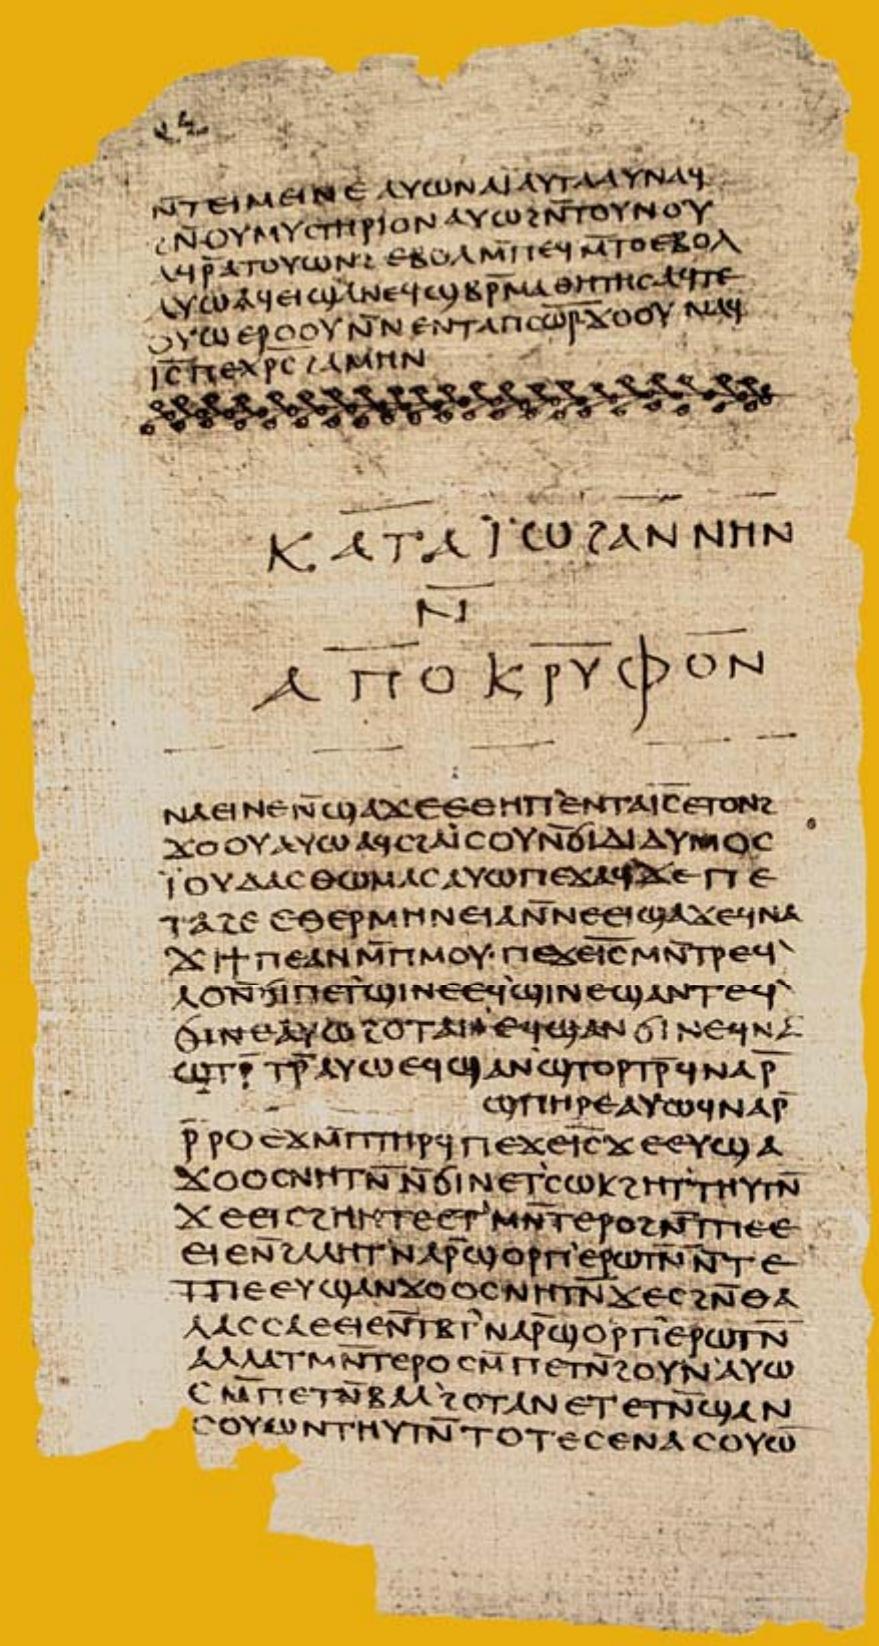 ⲛ̅ⲧⲉⲓⲙⲉⲓⲛⲉⲁⲩⲱⲛⲁⲓⲁⲩⲧⲁⲁⲩⲛⲁϥ
ϩⲛ̅ⲟⲩⲙⲩⲥⲧⲏⲣⲓⲟⲛⲁⲩⲱϩⲛ̅ⲧⲟⲩⲛⲟⲩ
ⲁϥⲣ̅ⲁⲧⲟⲩⲱⲛϩⲉⲃⲟⲗⲙ̅ⲡⲉϥⲙ̅ⲧⲟⲉⲃⲟⲗ
ⲁⲩⲱⲁϥⲉⲓϣⲁⲛⲉϥϣⲃⲣ̅ⲙⲁⲑⲏⲧⲏⲥⲁϥⲧⲉ
ⲟⲩⲱⲉⲣⲟⲟⲩⲛ̅ⲛⲉⲛⲧⲁⲡⲥⲱ̅ⲣ̅ϫⲟⲟⲩⲛⲁϥ
ⲓⲥ̅ⲡⲉⲭⲣⲥ̅ϩⲁⲙⲏⲛ
ⲕⲁⲧⲁⲓ̈ⲱϩⲁⲛⲛⲏⲛ
ⲛ̅ⲓ
ⲁⲡⲟⲕⲣⲩⲫⲟⲛ
ⲛⲁⲉⲓⲛⲉⲛ̅ϣⲁϫⲉⲉⲑⲏⲡ'ⲉⲛⲧⲁⲓⲥ̅ⲉⲧⲟⲛϩ
ϫⲟⲟⲩⲁⲩⲱⲁϥⲥϩⲁⲓ̈ⲥⲟⲩⲛ̅ϭⲓⲇⲓⲇⲩⲙⲟⲥ
ⲓ̈ⲟⲩⲇⲁⲥⲑⲱⲙⲁⲥⲁⲩⲱⲡⲉϫⲁϥϫⲉⲡⲉ
ⲧⲁϩⲉⲉⲑⲉⲣⲙⲏⲛⲉⲓⲁⲛ̅ⲛⲉⲉⲓϣⲁϫⲉϥⲛⲁ
ϫⲓϯⲡⲉⲁⲛⲙ̅ⲡⲙⲟⲩ·ⲡⲉϫⲉⲓⲥ̅ⲙⲛ̅ⲧⲣⲉϥ'
ⲗⲟⲛ̅ϭⲓⲡⲉⲧ'ϣⲓⲛⲉⲉϥ'ϣⲓⲛⲉϣⲁⲛⲧⲉϥ'
ϭⲓⲛⲉⲁⲩⲱϩⲟⲧⲁⲛ'ⲉϥϣⲁⲛϭⲓⲛⲉϥⲛⲁ
ϣⲧⲣ̅ⲧⲣ̅ⲁⲩⲱⲉϥϣⲁⲛ'ϣⲧⲟⲣⲧⲣ̅ϥⲛⲁⲣ̅
ϣⲡⲏⲣⲉⲁⲩⲱϥⲛⲁⲣ̅
ⲣ̅ⲣⲟⲉϫⲙ̅ⲡⲧⲏⲣϥⲡⲉϫⲉⲓⲥ̅ϫⲉⲉⲩϣⲁ
ϫⲟⲟⲥⲛⲏⲧⲛ̅ⲛ̅ϭⲓⲛⲉⲧ'ⲥⲱⲕϩⲏⲧ'ⲧⲏⲩⲧⲛ̅
ϫⲉⲉⲓⲥϩⲏⲏⲧⲉⲉⲧ'ⲙⲛ̅ⲧⲉⲣⲟϩⲛ̅ⲧⲡⲉⲉ
ⲉⲓⲉⲛ̅ϩⲁⲗⲏⲧ'ⲛⲁⲣ̅ϣⲟⲣⲡ'ⲉⲣⲱⲧⲛ̅ⲛ̅ⲧⲉ
ⲧⲡⲉⲉⲩϣⲁⲛϫⲟⲟⲥⲛⲏⲧⲛ̅ϫⲉⲥϩⲛ̅ⲑⲁ
ⲗⲁⲥⲥⲁⲉⲉⲓⲉⲛ̅ⲧⲃⲧ'ⲛⲁⲣ̅ϣⲟⲣⲡ'ⲉⲣⲱⲧⲛ̅
ⲁⲗⲗⲁⲧⲙⲛ̅ⲧⲉⲣⲟⲥⲙ̅ⲡⲉⲧⲛ̅ϩⲟⲩⲛ'ⲁⲩⲱ
ⲥⲙ̅ⲡⲉⲧⲛ̅ⲃⲁⲗ'ϩⲟⲧⲁⲛⲉⲧⲉⲧⲛ̅ϣⲁⲛ
ⲥⲟⲩⲱⲛⲧⲏⲩⲧⲛ̅ⲧⲟⲧⲉⲥⲉⲛⲁⲥⲟⲩⲱ̅